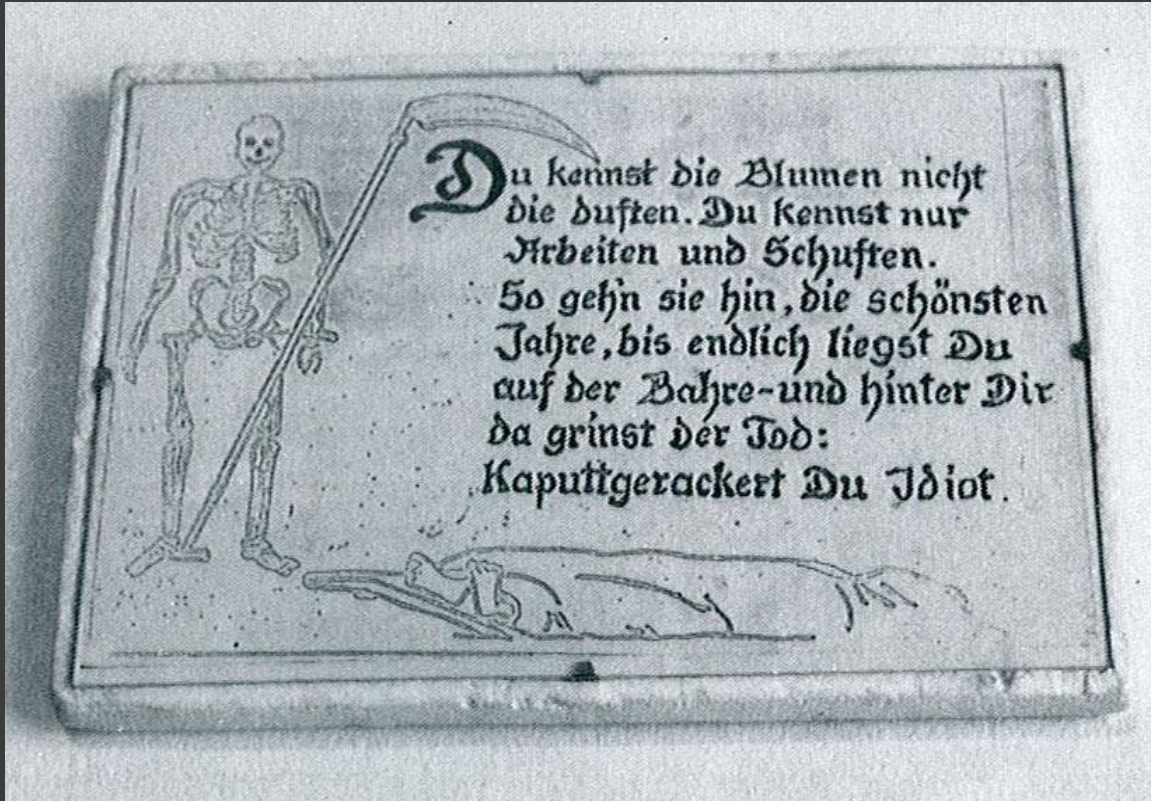 Du kennst die Blumen nicht
die duften. Du kennst nur
Arbeiten und Schuften.
So geh'n sie hin, die schönsten
Jahre, bis endlich liegst Du
auf der Bahre-und hinter Dir
da grinst der Tod:
Kaputtgerackert Du Idiot.